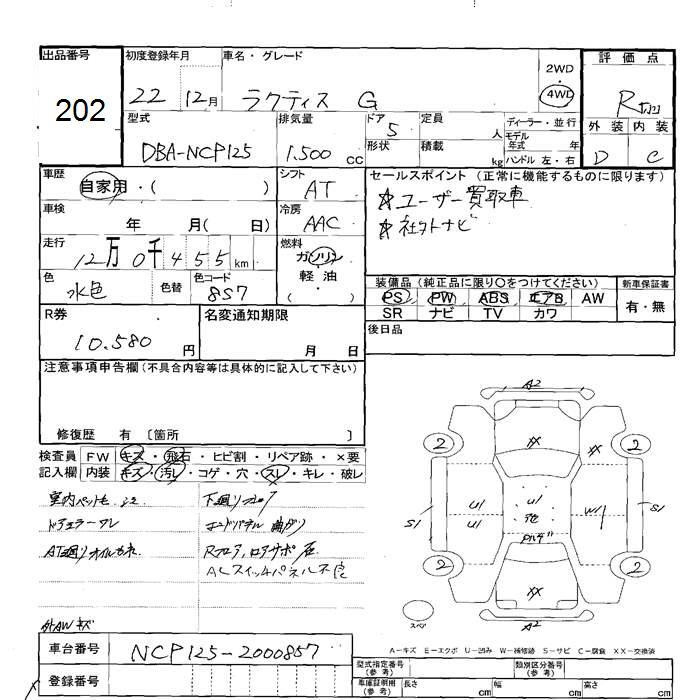 出品番号
202
初度登録年月
22 12月
車名・グレード
ラクティス G
2WD
・
4WD
評価点
R
外装 内装
D C
型式
DBA-NCP125
排気量
1.500 cc
ドア
5
形状
定員
人
積載
kg
ディーラー・並行
モデル
年式 年
ハンドル 左・右
車歴
自家用・( )
シフト
AT
セールスポイント (正常に機能するものに限ります)
☆ユーザー買取車
☆社外ナビ
車検
年 月( 日)
冷房
AAC
走行
12万0千455km
燃料
ガソリン
軽油
( )
色
水色
色替
色コード
8S7
装備品 (純正品に限り○をつけてください)
PS PW ABS エアB AW
SR ナビ TV カワ
新車保証書
有・無
R券
10.580 円
名変通知期限
月 日
後日品
注意事項申告欄 (不具合内容等は具体的に記入して下さい)
修復歴 有 〔箇所 〕
検査員
記入欄
FW キズ・飛石・ヒビ割・リペア跡・×要
内装 キズ・汚レ・コゲ・穴・スレ・キレ・破レ
ACスイッチパネル不良
外AWキズ
A2
2 XX XX 2
S1 U1 U1 U1 W1 S1
2 XX 2
A2
スペア
A-キズ E-エクボ U-凹み W-補修跡 S-サビ C-腐食 XX-交換済
車台番号
NCP125-2000857
登録番号
型式指定番号
(参考)
類別区分番号
(参考)
車庫証明用
(参考)
長さ cm 幅 cm 高さ cm